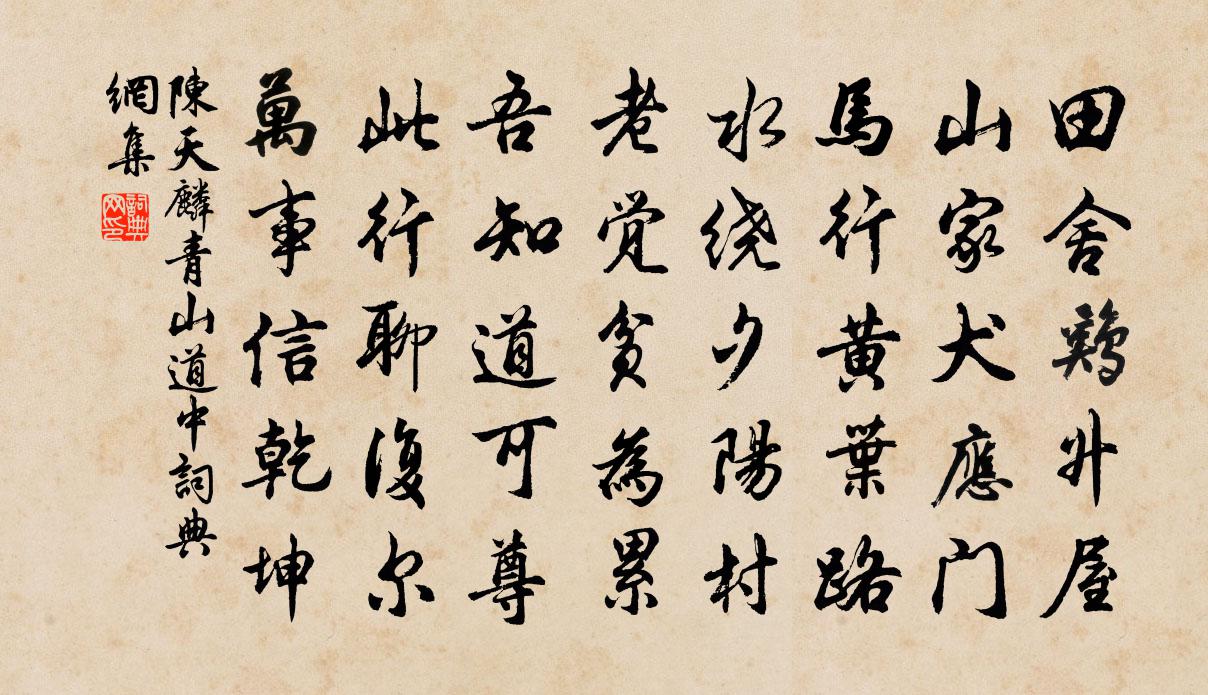 田舍鷄升屋
山家犬應门
馬行黄葉路
水绕夕陽村
老觉貧為累
吾知道可尊
此行聊復尔
萬事信乾坤
陳天麟青山道中詞典
網集
詞典
网印